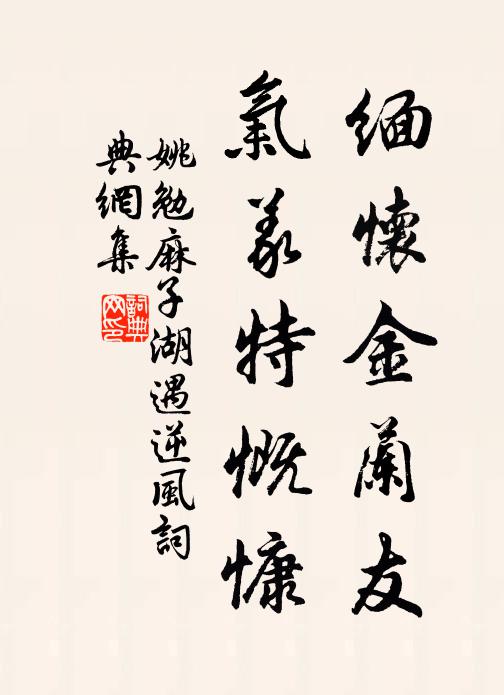 緬懷金蘭友
氣義特慨慷
姚勉麻子湖遇逆風詞
典網集
詞典
网印